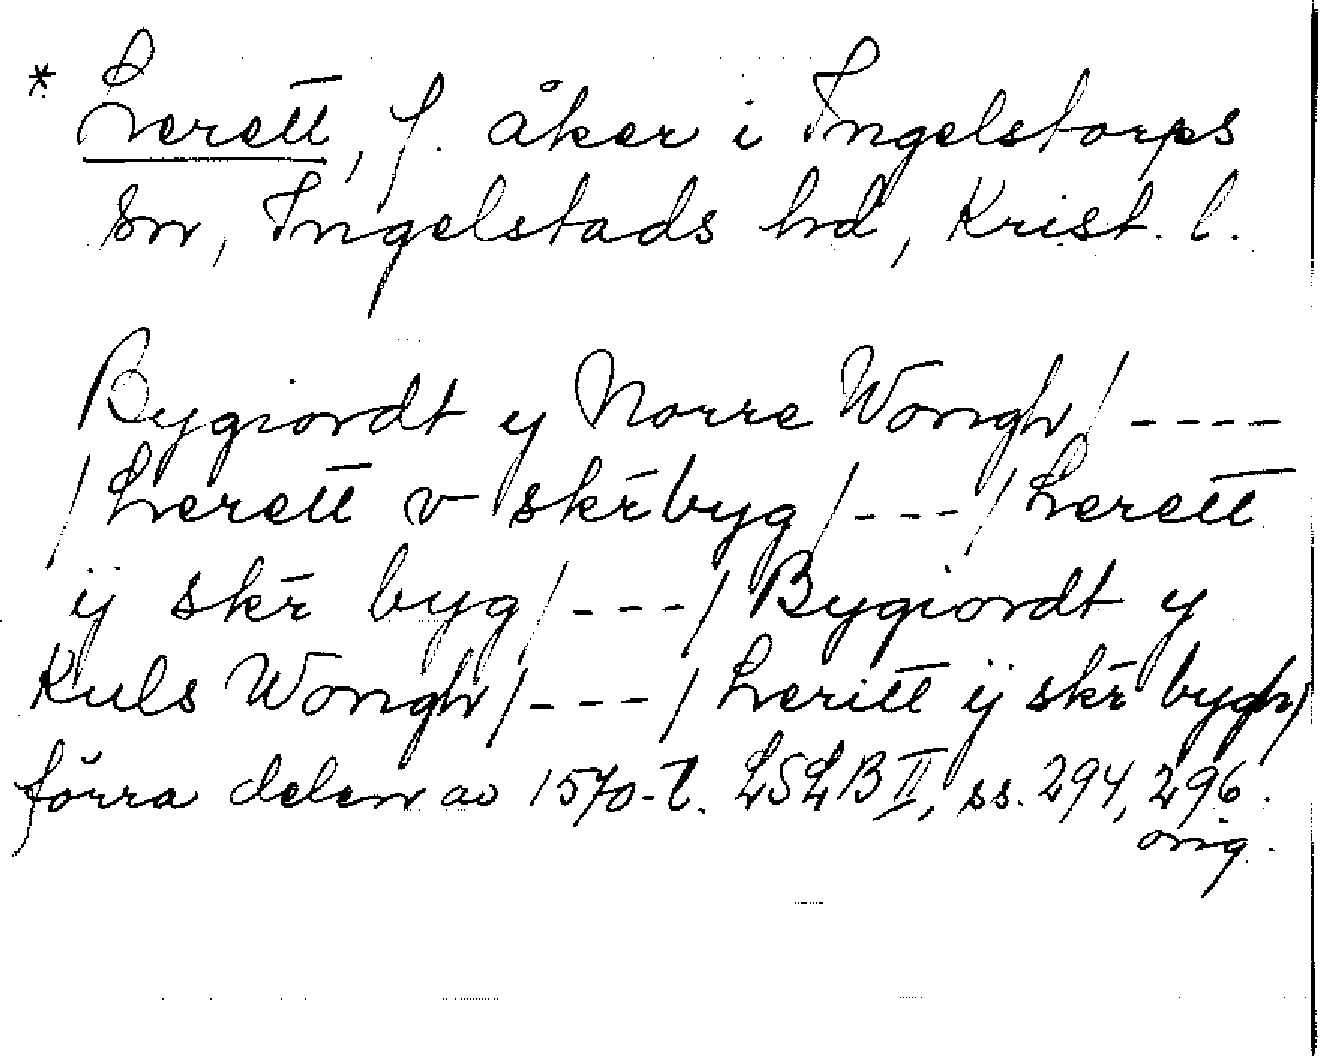 * Lerett, f. åker i Ingelstorps
sn, Ingelstads hd, Krist. l.
Bygiordt y Norre Wongh/----
/Lerett v skr̄byg/---/Lerett
ij skr̄ byg/---/Bygiordt y
Kuls Wongh/---/Leritt ij skr̄ bygh/
förra delen av 1570-t. LSLB II, ss. 294, 296.
orig.